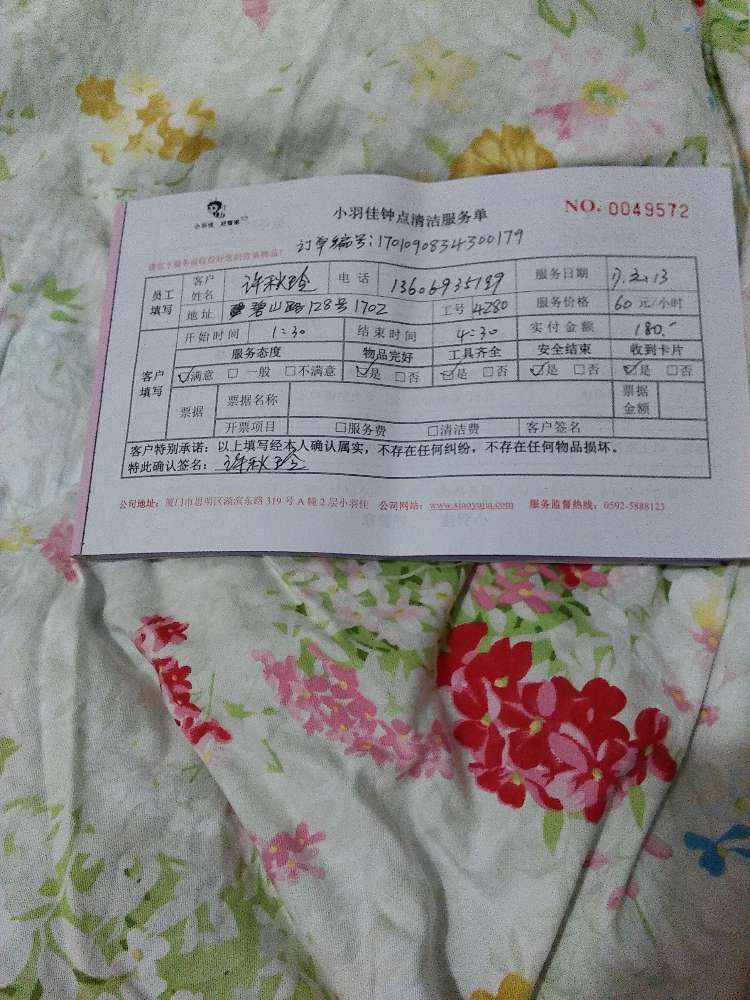 小羽佳 好管家
小羽佳钟点清洁服务单
NO. 0049572
订单编号:1701090834300179
员工填写 客户姓名 许秋珍 电话 13606935189 服务日期 17.2.13
地址 碧山路128号1702 工号 4280 服务价格 60元/小时
开始时间 1:30 结束时间 4:30 实付金额 180.-
客户填写 服务态度 物品完好 工具齐全 安全结束 收到卡片
☑满意 □一般 □不满意 ☑是 □否 ☑是 □否 ☑是 □否 ☑是 □否
票据 票据名称 票据金额
开票项目 □服务费 □清洁费 客户签名
客户特别承诺:以上填写经本人确认属实,不存在任何纠纷,不存在任何物品损坏。
特此确认签名:许秋珍
公司地址:厦门市思明区湖滨东路319号A幢2层小羽佳 公司网站:www.xiaoyujia.com 服务监督热线:0592-5888123